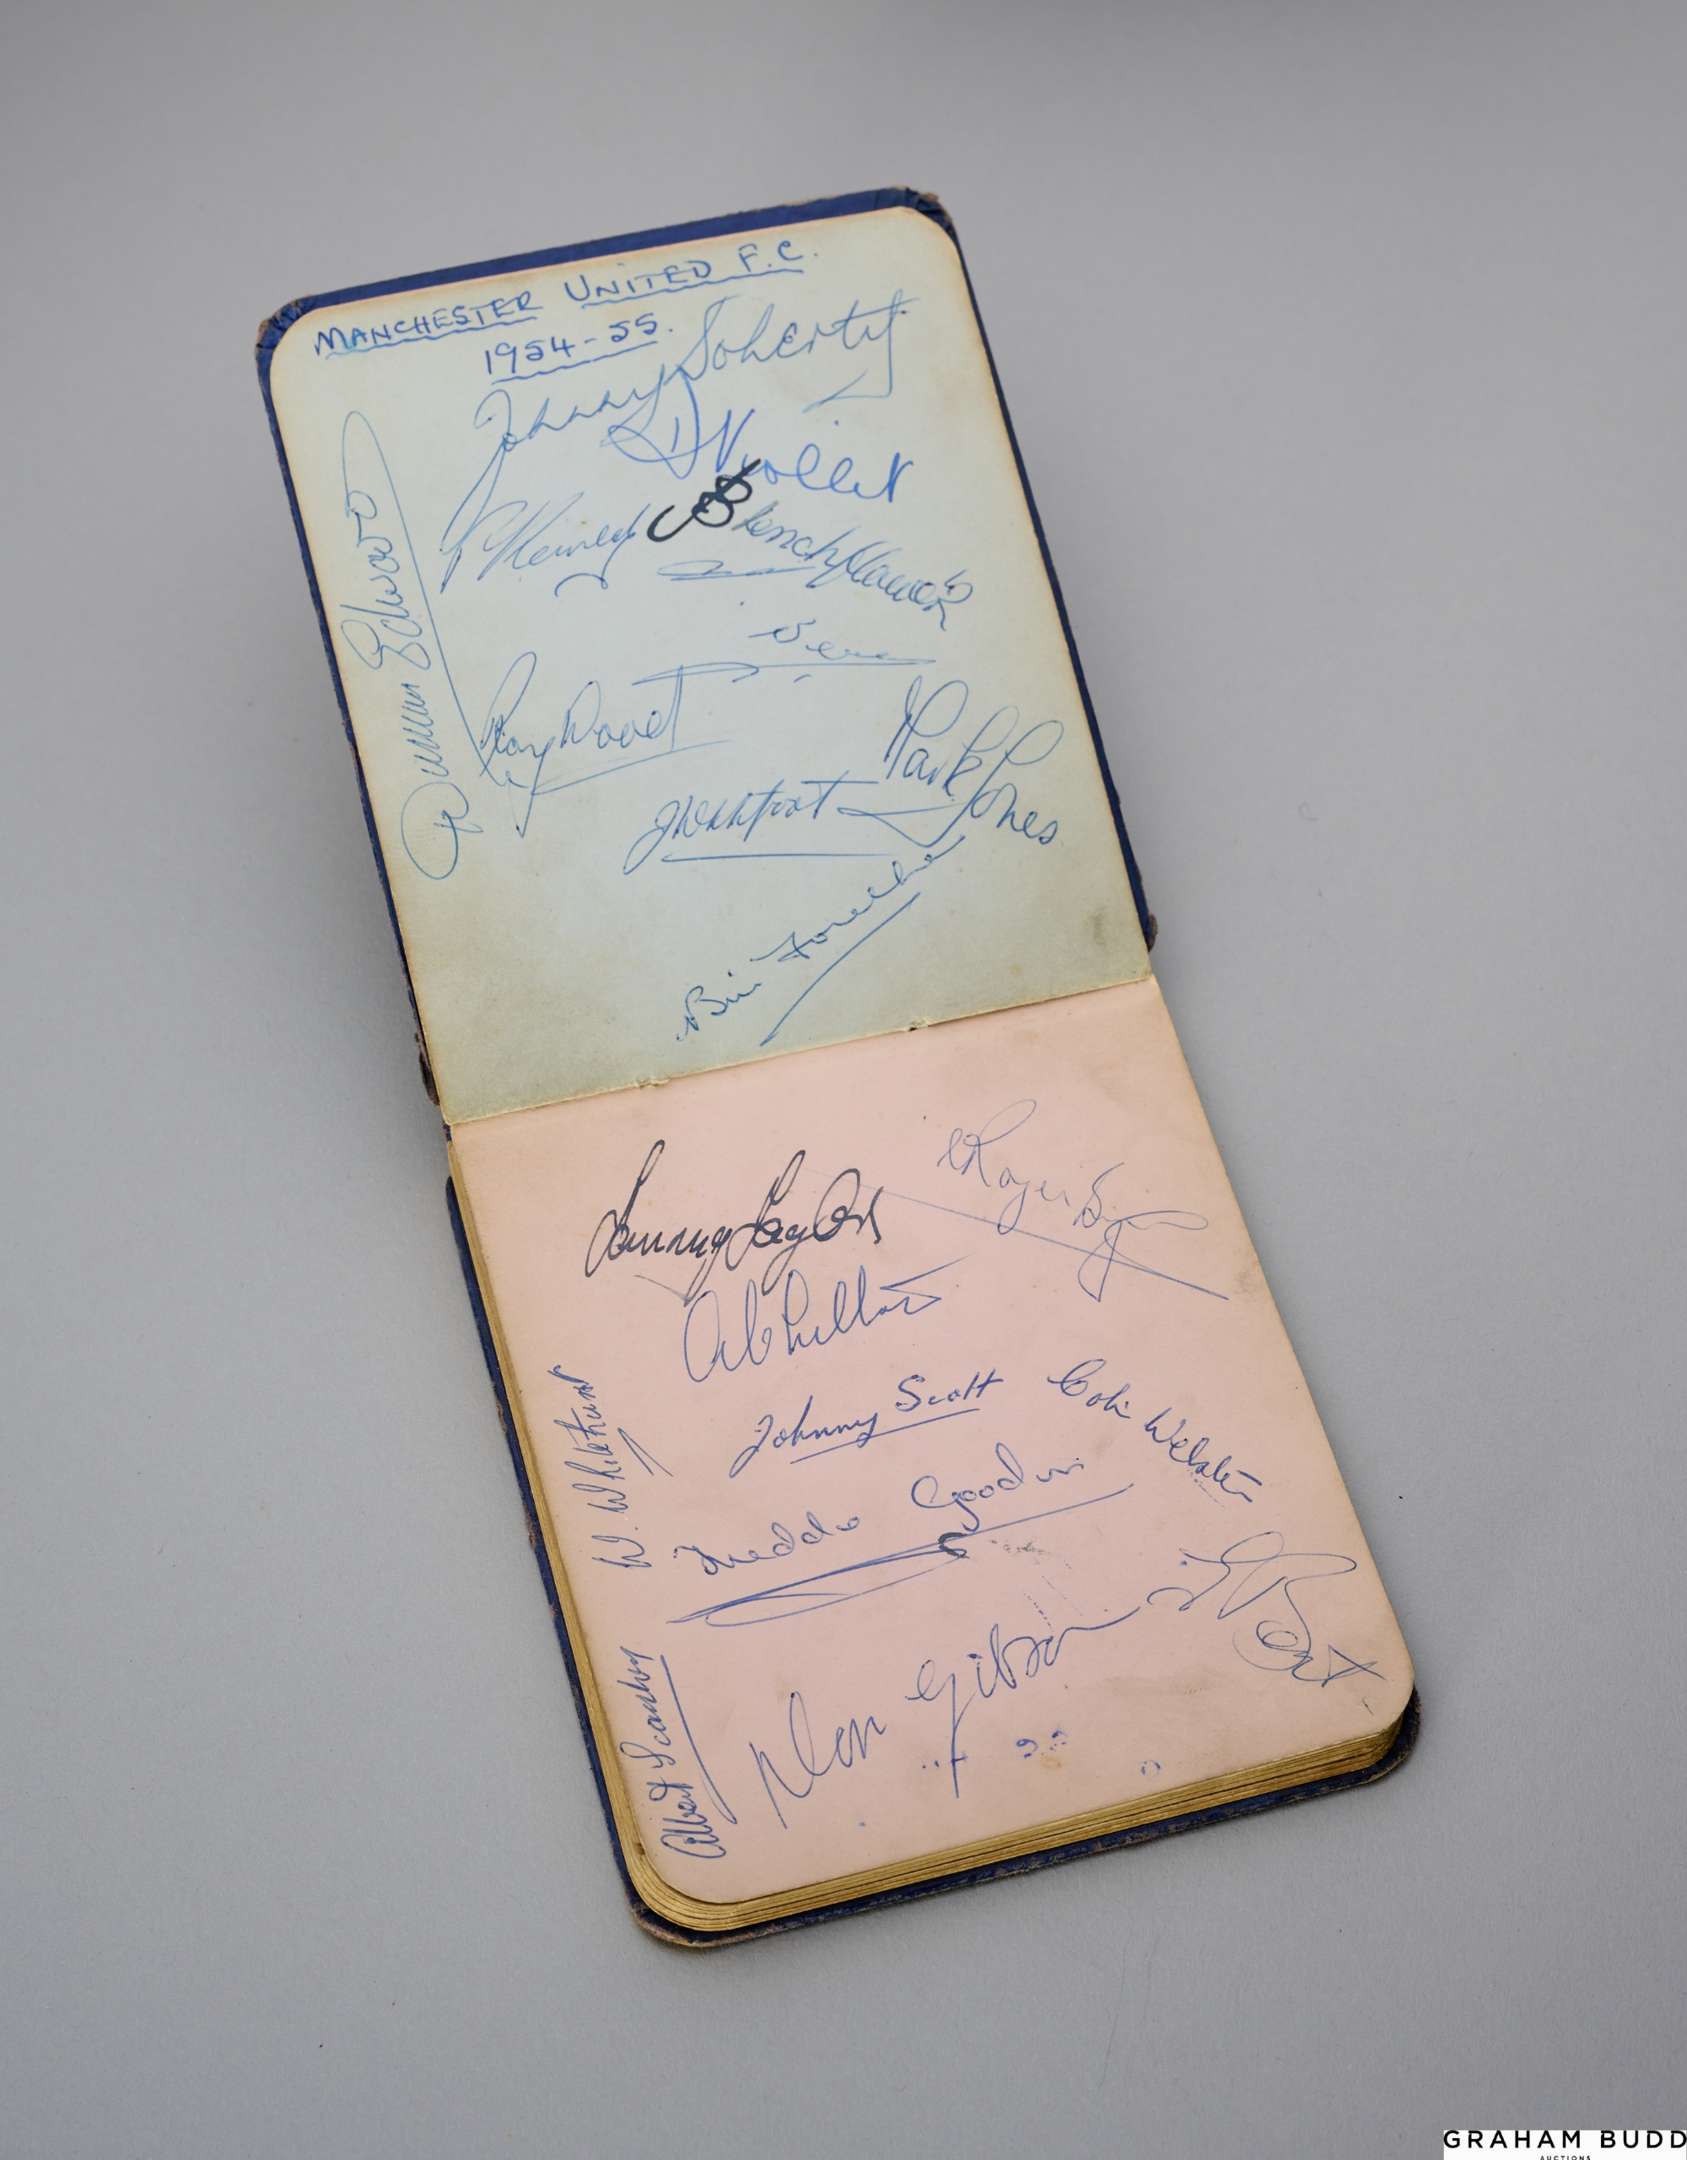 MANCHESTER UNITED F.C.
1954-55.
Johnny Doherty
D Viollet
Duncan Edwards
J Blanchflower
Ray Wood
Mark Jones
J Whitefoot
Bill Foulkes
Tommy Taylor
Roger Byrne
A Chilton
Johnny Scott
Colin Webster
W. Whitehurst
Freddie Goodwin
G Bent
Don Gibson
Albert Scanlon
GRAHAM BUDD
AUCTIONS